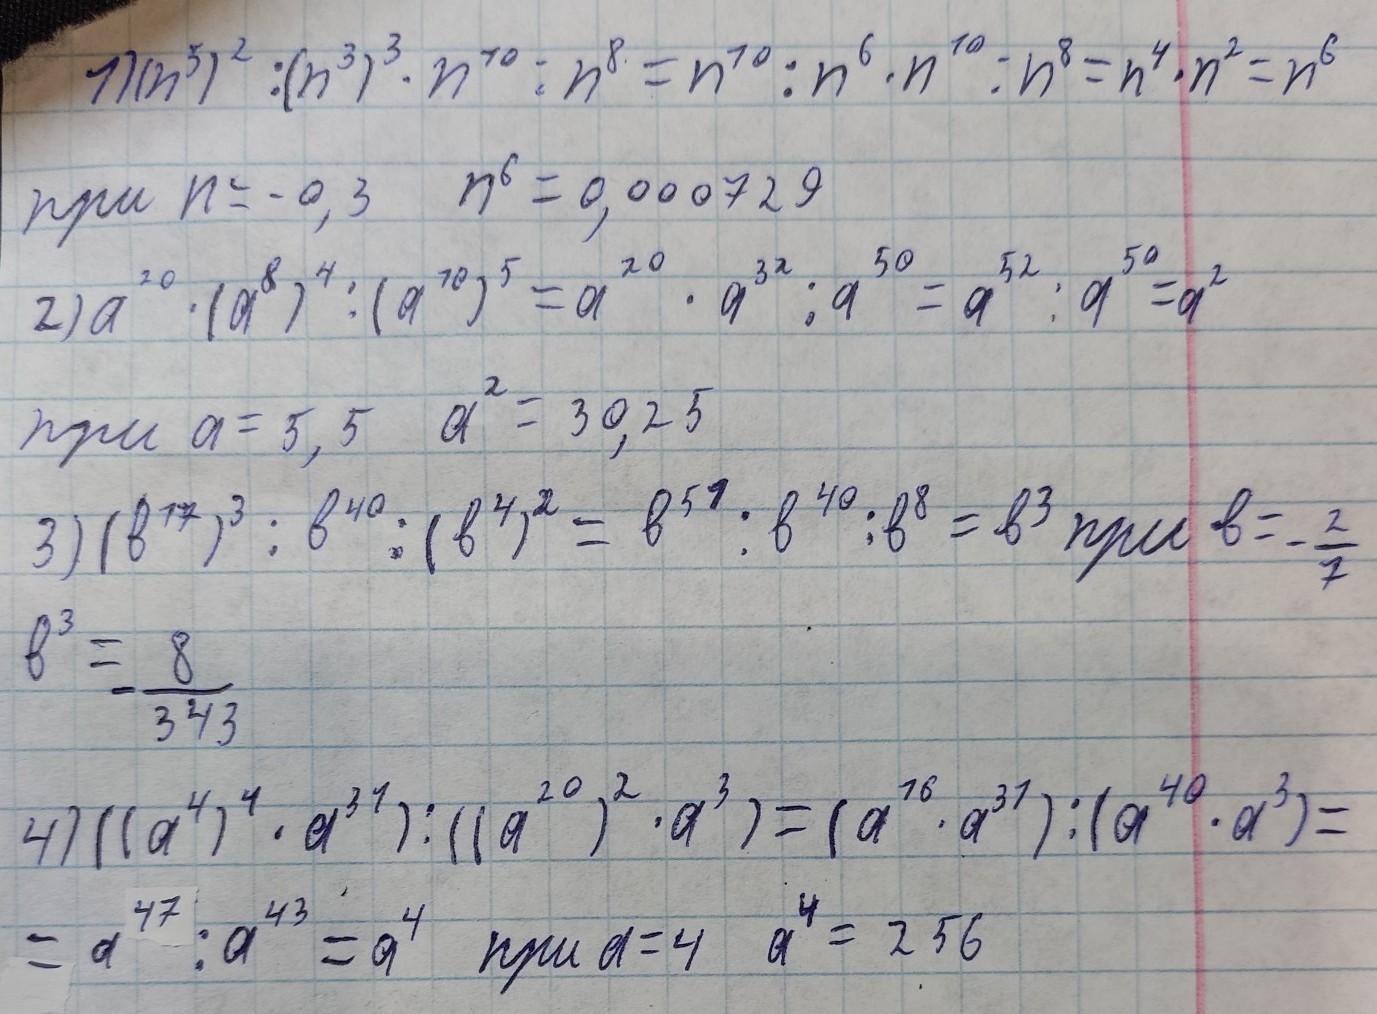 1)(n⁵)² : (n³)³ · n¹⁰ : n⁸ = n¹⁰ : n⁶ · n¹⁰ : n⁸ = n⁴ · n² = n⁶
при n = -0,3 n⁶ = 0,000729
2) a²⁰ · (a⁸)⁴ : (a¹⁰)⁵ = a²⁰ · a³² : a⁵⁰ = a⁵² : a⁵⁰ = a²
при a = 5,5 a² = 30,25
3) (в¹⁷)³ : в⁴⁰ : (в⁴)² = в⁵¹ : в⁴⁰ : в⁸ = в³ при в = -2/7
в³ = -8/343
4) ((a⁴)⁴ · a³¹) : ((a²⁰)² · a³) = (a¹⁶ · a³¹) : (a⁴⁰ · a³) =
= a⁴⁷ : a⁴³ = a⁴ при a = 4 a⁴ = 256